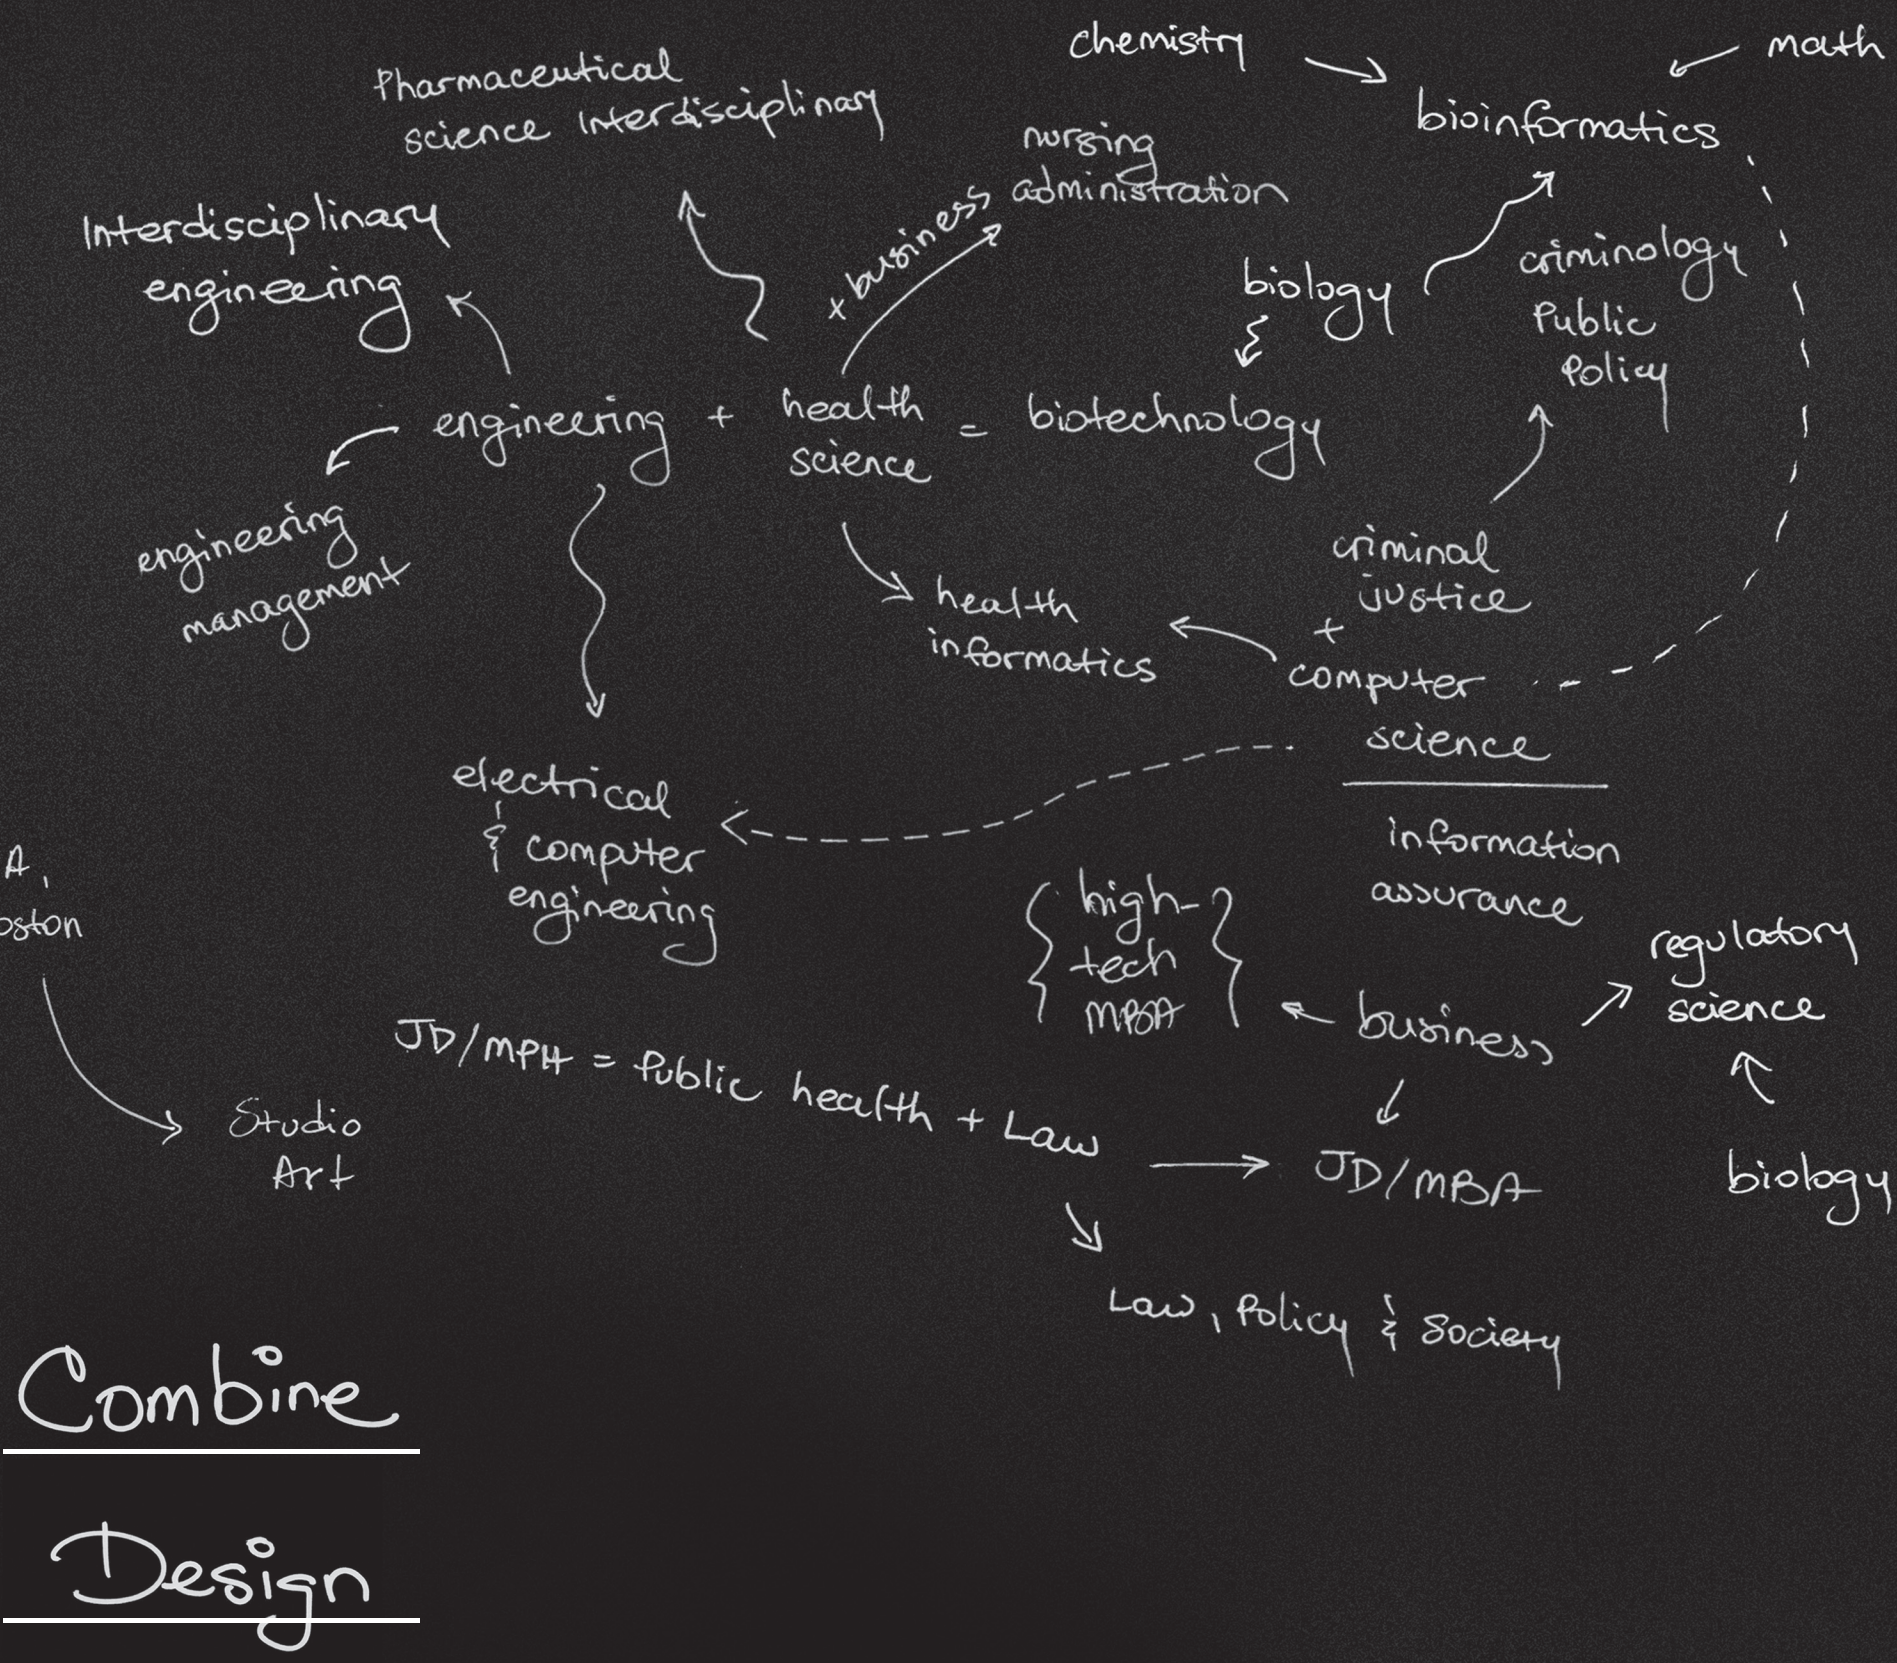 chemistry
math
Pharmaceutical
science Interdisciplinary
bioinformatics
nursing
administration
+ business
Interdisciplinary
engineering
biology
criminology
Public
Policy
engineering + health
science
= biotechnology
engineering
management
criminal
justice
+
computer
science
health
informatics
information
assurance
electrical
& computer
engineering
A,
{ high-
tech
MBA }
regulatory
science
business
biology
JD/MPH = Public health + Law
JD/MBA
Studio
Art
Law, Policy & Society
Combine
Design